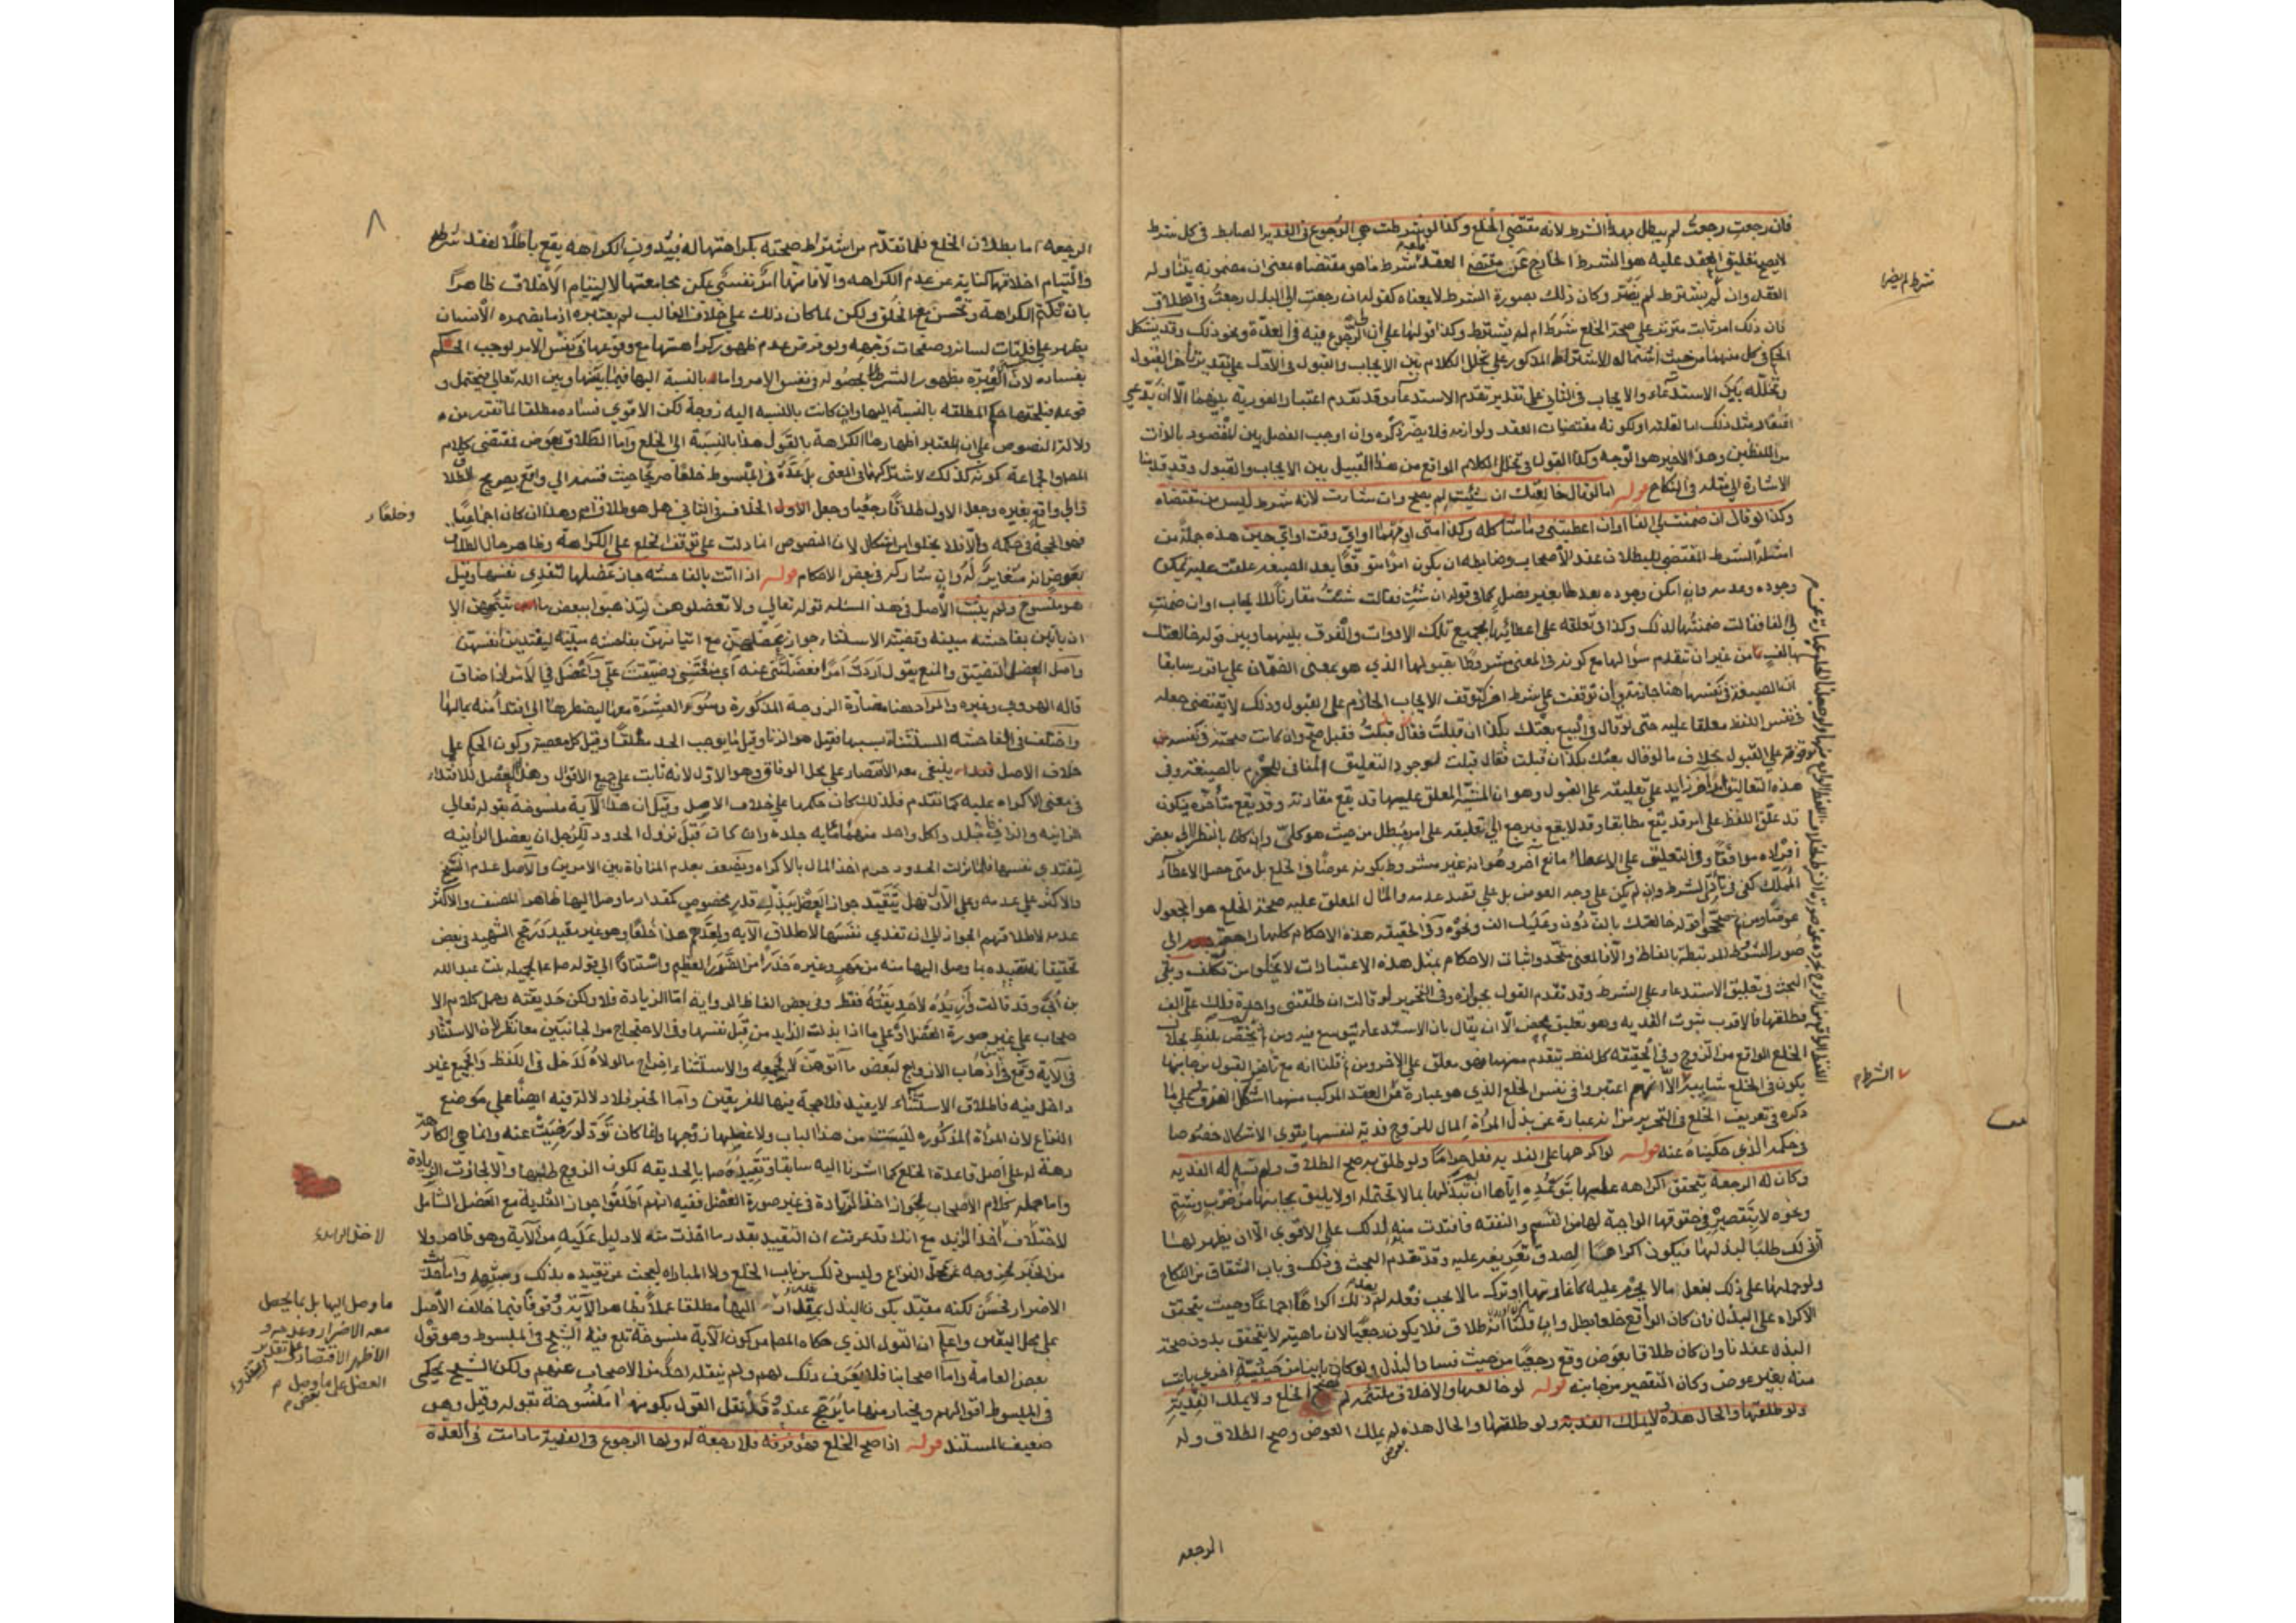 فان رجعت رجعت لم يبطل بهذا الشرط لانه مقتضى الخلع وكذا لو شرطت هي الرجوع في الفدية الضابط في كل شرط
لا يصح تعليق العقد عليه هو الشرط الخارج عن مقتضى العقد شرط ما هو مقتضاه بمعنى ان مضمونه يتناوله
العقد وان لم يشترط لم يضر وكان ذلك بصورة الشرط لا بمعناه كقوله ان رجعت الى البذل رجعت في الطلاق
فان ذلك امر ثابت مترتب على صحة الخلع شرط ام لم يشترط وكذا قولها على ان الرجوع فيه في العدة ونحو ذلك وقد يشكل
الحكم في كل منهما من حيث اشتماله الاشتراط المذكور على تخلل الكلام بين الايجاب والقبول في الاول على تقدير تاخر القبول
وتخلله بين الاستدعاء والايجاب في الثاني على تقدير تقدم الاستدعاء وقد تقدم اعتبار الفورية بينهما الا ان يدعى
اغتفار مثل ذلك اما لقلته او لكونه مقتضيات العقد ولوازمه فلا يضر ذكره وان اوجب الفصل بين المقصود بالذات
من اللفظين وهذا الاخير هو الوجه وكذا القول في تخلل الكلام الواقع من هذا القبيل بين الايجاب والقبول وقد قدمنا
الاشارة الى مثله في النكاح قوله اما لو قال خالعتك ان شئت لم يصح وان شاءت لانه شرط ليس من مقتضاه
وكذا لو قال ان ضمنت لي الفا او ان اعطيتني وما شاكله وكذا متى او مهما او اي وقت او اي حين هذه جملة من
امثلة الشرط المقتضي للبطلان عند الاصحاب وضابطه ان يكون امرا متوقعا بعد الصيغة علقت عليه يمكن
وجوده وعدمه وان امكن وجوده بعدها بغير فصل كما في قوله ان شئت فقالت شئت مقارنا للايجاب او ان ضمنت
لي الفا فقالت ضمنتها لك وكذا في تعلقه على اعطائها بجميع تلك الادوات والفرق بينهما وبين قوله خالعتك
بالف من غير ان تقدم سؤالها مع كونه في المعنى مشروطا بقبولها الذي هو بمعنى الضمان على ما تقرر سابقا
ان الصيغة في نفسها هنا جازمة وان توقفت على شرط اخر كتوقف الايجاب الجازم على القبول وذلك لا يقتضي جعله
في نفس اللفظ معلقا عليه حتى لو قال في البيع بعتك بكذا ان قبلت فقال قبلت
على القبول بخلاف ما لو قال بعتك بكذا ان قبلت فقال قبلت لوجود التعليق المنافي للجزم بالصيغة وفي
هذه التعاليق امر اخر زايد على تعليقه على القبول وهو ان المشية المعلق عليها قد يقع مقارنة وقد يقع متأخرة يكون
قد علق اللفظ على امر قد يقع مطابقا وقد لا يقع فيرجع الى تعليقه على امر مبطل من حيث هو كلي وان كان بالنظر الى بعض
افراده موافقا وفي التعليق على الاعطاء مانع آخر وهو انه غير مشروط بكونه عوضا في الخلع بل متى حصل الاعطاء
المملك كفى في تأثير الشرط وان لم يكن على وجه العوض بل على قصد عدمه والمال المعلق عليه صحة الخلع هو المجعول
عوضا ومن ثم صححوا قوله خالعتك بالف دون وعليك الف ونحوه وفي الحقيقة هذه الاحكام كلها راجعة الى
صور الشروط المرتبطة بالفاظ والا فالمعنى متحد واثبات الاحكام بمثل هذه الاعتبارات لا يخلو من تكلف وبقي
البحث في تعليق الاستدعاء على الشرط وقد تقدم القول بجوازه وفي التحرير لو قالت ان طلقتني واحدة فلك على الف
فطلقها فالاقرب ثبوت الفدية وهو تعليق محض الا ان يقال بان الاستدعاء يتوسع فيه ومن ثم لم يختص بلفظ بخلاف
الخلع الواقع من الزوج وفي الحقيقة كل لفظ يتقدم منهما فهو معلق على الاخر ومن ثم قلنا انه مع تأخير القبول من جانبها
يكون في الخلع شايبة الا انهم اعتبروا في نفس الخلع الذي هو عبارة عن العقد المركب منهما اشكل الفرق على ما
ذكره في تعريف الخلع في التحرير من انه عبارة عن بذل المرأة المال للزوج فدية لنفسها يقوى الاشكال خصوصا
في حكمه الذي حكيناه عنه قوله لو اكرهها على الفدية فعل حراما ولو طلق به صح الطلاق ولم تسلم له الفدية
وكان له الرجعة يتحقق اكراهه عليها بتوعده اياها ان لم تبذلها بما لا تحتمله او لا يليق بجانبها من ضرب وشتم
ونحوه لا بتقصيره في حقوقها الواجبة لها من القسم والنفقة فافتدت منه لذلك على الاقوى الا ان يظهر لها
ان ذلك طلبا لبذلها فيكون اكراها لصدق تعريفه عليه وقد تقدم البحث في ذلك في باب الشقاق من النكاح
ولو حملها على ذلك بفعل ما لا يحرم عليه كاغارتها او ترك ما لا يجب فعله لم يعد ذلك اكراها اجماعا وحيث يتحقق
الاكراه على البذل فان كان الواقع خلعا بطل وان قلنا انه طلاق فلا يكون رجعيا لان ماهيته لا يتحقق بدون صحة
البذل عندنا وان كان طلاقا بعوض وقع رجعيا من حيث فساد البذل ولو كان باينا من حيثية اخرى بانت
منه بغير عوض وكان التقصير من جانبه قوله لو خالعها والاخلاق ملتئمة لم يصح الخلع ولا يملك الفدية
ولو طلقها والحال هذه لا يملك الفدية ولو طلقها والحال هذه بعوض لم يملك العوض وصح الطلاق وله
الرجعه
شرط لم يضر
الشرط م
٨
الرجعة اما بطلان الخلع فلما تقدم من اشتراط صحته بكراهتها له فبدون الكراهة يقع باطلا لفقد شرطه
والتيام اخلاقهما كناية عن عدم الكراهه والا فانها امر نفسي يمكن مجامعتها لالتيام الاخلاق ظاهرا
بان تكتم الكراهة وتحسن مع الخلق ولكن لما كان ذلك على خلاف الغالب لم يعتبره اذ ما يضمره الانسان
يظهر على فلتات لسانه وصفحات وجهه ولو فرض عدم ظهور كراهتها مع وقوعها في نفس الامر لوجب الحكم
بفساده لان العبرة بظهور الشرط لا بحصوله في نفس الامر واما بالنسبة اليها فيما بينها وبين الله تعالى فيحتمل و
قوعه فيلحقها حكم المطلقه بالنسبة اليها وان كانت بالنسبه اليه زوجة لكن الاقوى فساده مطلقا لما تقرر من
دلالة النصوص على ان المعتبر اظهارها الكراهة بالقول هذا بالنسبة الى الخلع واما الطلاق بعوض فمقتضى كلام
المصر والجماعة كونه كذلك لاشتراكهما في المعنى بل عده في المبسوط خلعا صريحا حيث قسمه الى واقع بصريح الطلاق
والى واقع بغيره وجعل الاول طلاقا رجعيا وجعل الاول الخلاف في الثاني هل هو طلاق ام وهذا ان كان اجماعيا
فهو الحجة في حكمه والا فلا يخلو من اشكال لان النصوص انما دلت على توقف الخلع على الكراهة وظاهر حال الطلاق
بعوض انه مغاير له وان شاركه في بعض الاحكام قوله اذا اتت بالفاحشه جاز عضلها لتفدي نفسها وقيل
هو منسوخ ولم يثبت الاصل في هذه المسئله قوله تعالى ولا تعضلوهن لتذهبوا ببعض ما اتيتموهن الا
ان ياتين بفاحشة مبينة وقضية الاستثناء جواز عضلهن مع اتيانهن بفاحشة مبينة ليفتدين انفسهن
واصل العضل التضييق والمنع يقول اردت امرا فعضلتني عنه اي منعتني وضيقت علي واعضل في الامر اذا ضاق
قاله الهروي وغيره والمراد هنا مضارة الزوجة المذكورة وسوء العشرة معها ليضطرها الى افتداء منه بمالها
واختلف في الفاحشه المستثناة بسببها فقيل هو الزنا وقيل ما يوجب الحد مطلقا وقيل كل معصية وكون الحكم على
خلاف الاصل ينبغي معه الاقتصار على محل الوفاق وهو الاول لانه ثابت على جميع الاقوال وهذا العضل للافتداء
في معنى الاكراه عليه كما تقدم فلذلك كان حكمها على خلاف الاصل وقيل ان هذه الآية منسوخة بقوله تعالى
الزانيه والزاني فاجلدوا كل واحد منهما مايه جلده وان كانت قبل نزول الحدود لكن جاز ان يعضل الزانيه
لتفتدي نفسها فلما نزلت الحدود حرم اخذ المال بالاكراه ويضعف بعدم المنافاة بين الامرين والاصل عدم النسخ
والاكثر على عدمه وعلى الاول فهل يتقيد جواز العضل ببذل قدر مخصوص كمقدار ما وصل اليها ظاهر المصنف والاكثر
عدمه لاطلاقهم الجواز الى ان تفدي نفسها لاطلاق الآيه وليعد هذا خلعا وهو غير مقيد ورجح الشهيد في بعض
تحقيقاته تقييده بما وصل اليها منه من مهر وغيره حذرا من الضرر العظيم واستنادا الى قوله صلعم لجميلة بنت عبد الله
بن ابي وقد قالت وازيده لا حديقته فقط وفي بعض الفاظ الرواية اما الزيادة فلا ولكن حديقته وحمل كلام الا
صحاب على غير صورة العضل او على ما اذا بذلت الزايد من قبل نفسها وفي الاحتجاج من الجانبين معا نظر لان الاستثناء
في الآية وقع في اذهاب الازواج لبعض ما آتوهن لا جميعه والاستثناء اخراج ما لولاه لدخل في اللفظ والجميع غير
داخل فيه فاطلاق الاستثناء لا يفيد فلا حجة فيها للفريقين واما الخبر فلا دلالة فيه ايضا على موضع
النزاع لان المراة المذكوره ليست من هذا الباب ولا عضلها زوجها وانما كان تود لو رضيت عنه وانما هي الكار
رهة له على اصل قاعدة الخلع كما اشرنا اليه سابقا وتقييده صا بالحديقه لكون الزوج طلبها والا لجازت الزيادة
واما حمله كلام الاصحاب بجواز اخذ الزيادة في غير صورة العضل ففيه انهم اطلقوا جواز الفدية مع العضل الشامل
لاختلاف اخذ المزيد مع انك قد عرفت ان التقييد بقدر ما اخذت منه لا دليل عليه من الآية وهو ظاهر ولا
من الخبر لخروجه عن محل النزاع وليس ذلك من باب الخلع ولا المباراة ليبحث عن تقييده بذلك
الاضرار فحسن لكنه مقيد بكون البذل بمقدار اليها مطلقا عملا بظاهر الآية وقوفا فيما خالف الاصل
على محل اليقين واعلم ان القول الذي حكاه المصر من كون الآية منسوخة تبع فيه الشيخ في المبسوط وهو قول
بعض العامة واما اصحابنا فلا يعرف ذلك لهم ولم ينقله احد من الاصحاب عنهم ولكن الشيخ يحكي
في المبسوط اقوالهم ويختار منها ما يترجح عنده وقد نقل القول بكونها منسوخة بقوله وقيل وهو
ضعيف المستند قوله اذا صح الخلع فهو فرقه فلا رجعة له ولها الرجوع في الفدية ما دامت في العدة
وخلعا
ما وصل اليها بل بما يحصل
معه الاضرار وعلى
الاظهر الاقتصار
العضل على ما وصل م